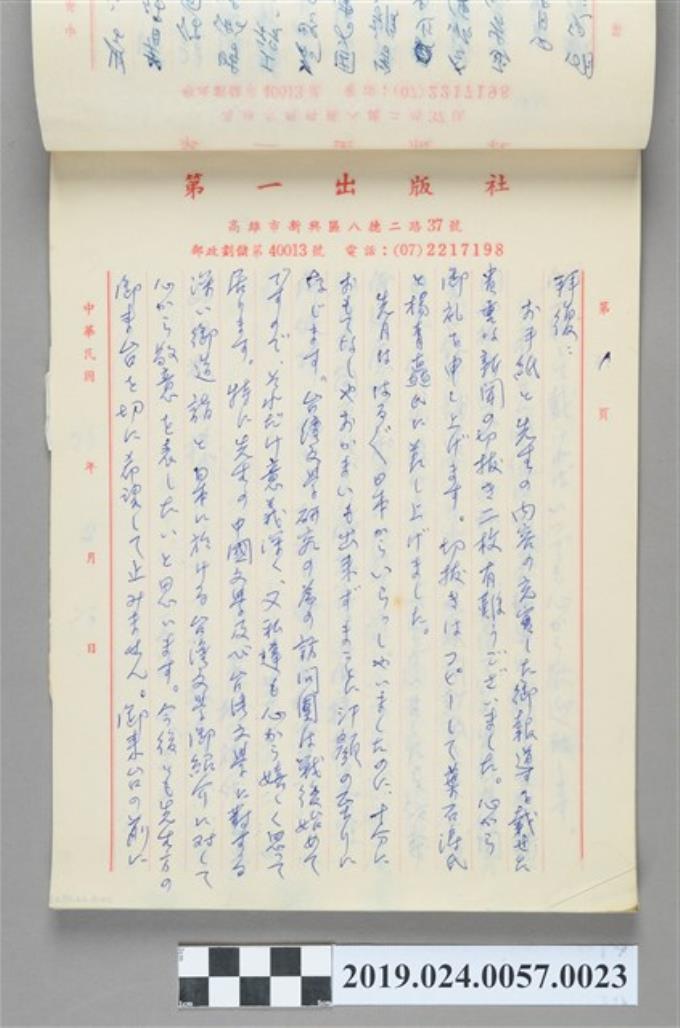 第一出版社
高雄市新興區八德二路37號
郵政劃儲第40013號 電話：(07)2217198
第 1 頁
拝復：
お手紙と先生の内容の充実した御報導を載せた
貴重な新聞の切抜き二枚有難うございました。心から
御礼を申し上げます。切抜きはコピーして葉石濤氏
と楊青矗氏に差し上げました。
先月ははるばる日本からいらっしゃいましたのに、十分に
おもてなしやおかまいも出来ずまことに汗顔の至りに
存じます。台湾文學研究の為の訪問團は戰後始めて
ですので、それだけ意義深く、又私達も心から嬉しく思って
居ります。特に先生の中國文學及心台湾文學に對する
深い御造詣と日本に於ける台湾文學御紹介に対して
心から敬意を表したいと思います。今後とも先生方の
御来台を切に希望して止みません。御来台の前に
中華民國 年 月 日
2019.024.0057.0023